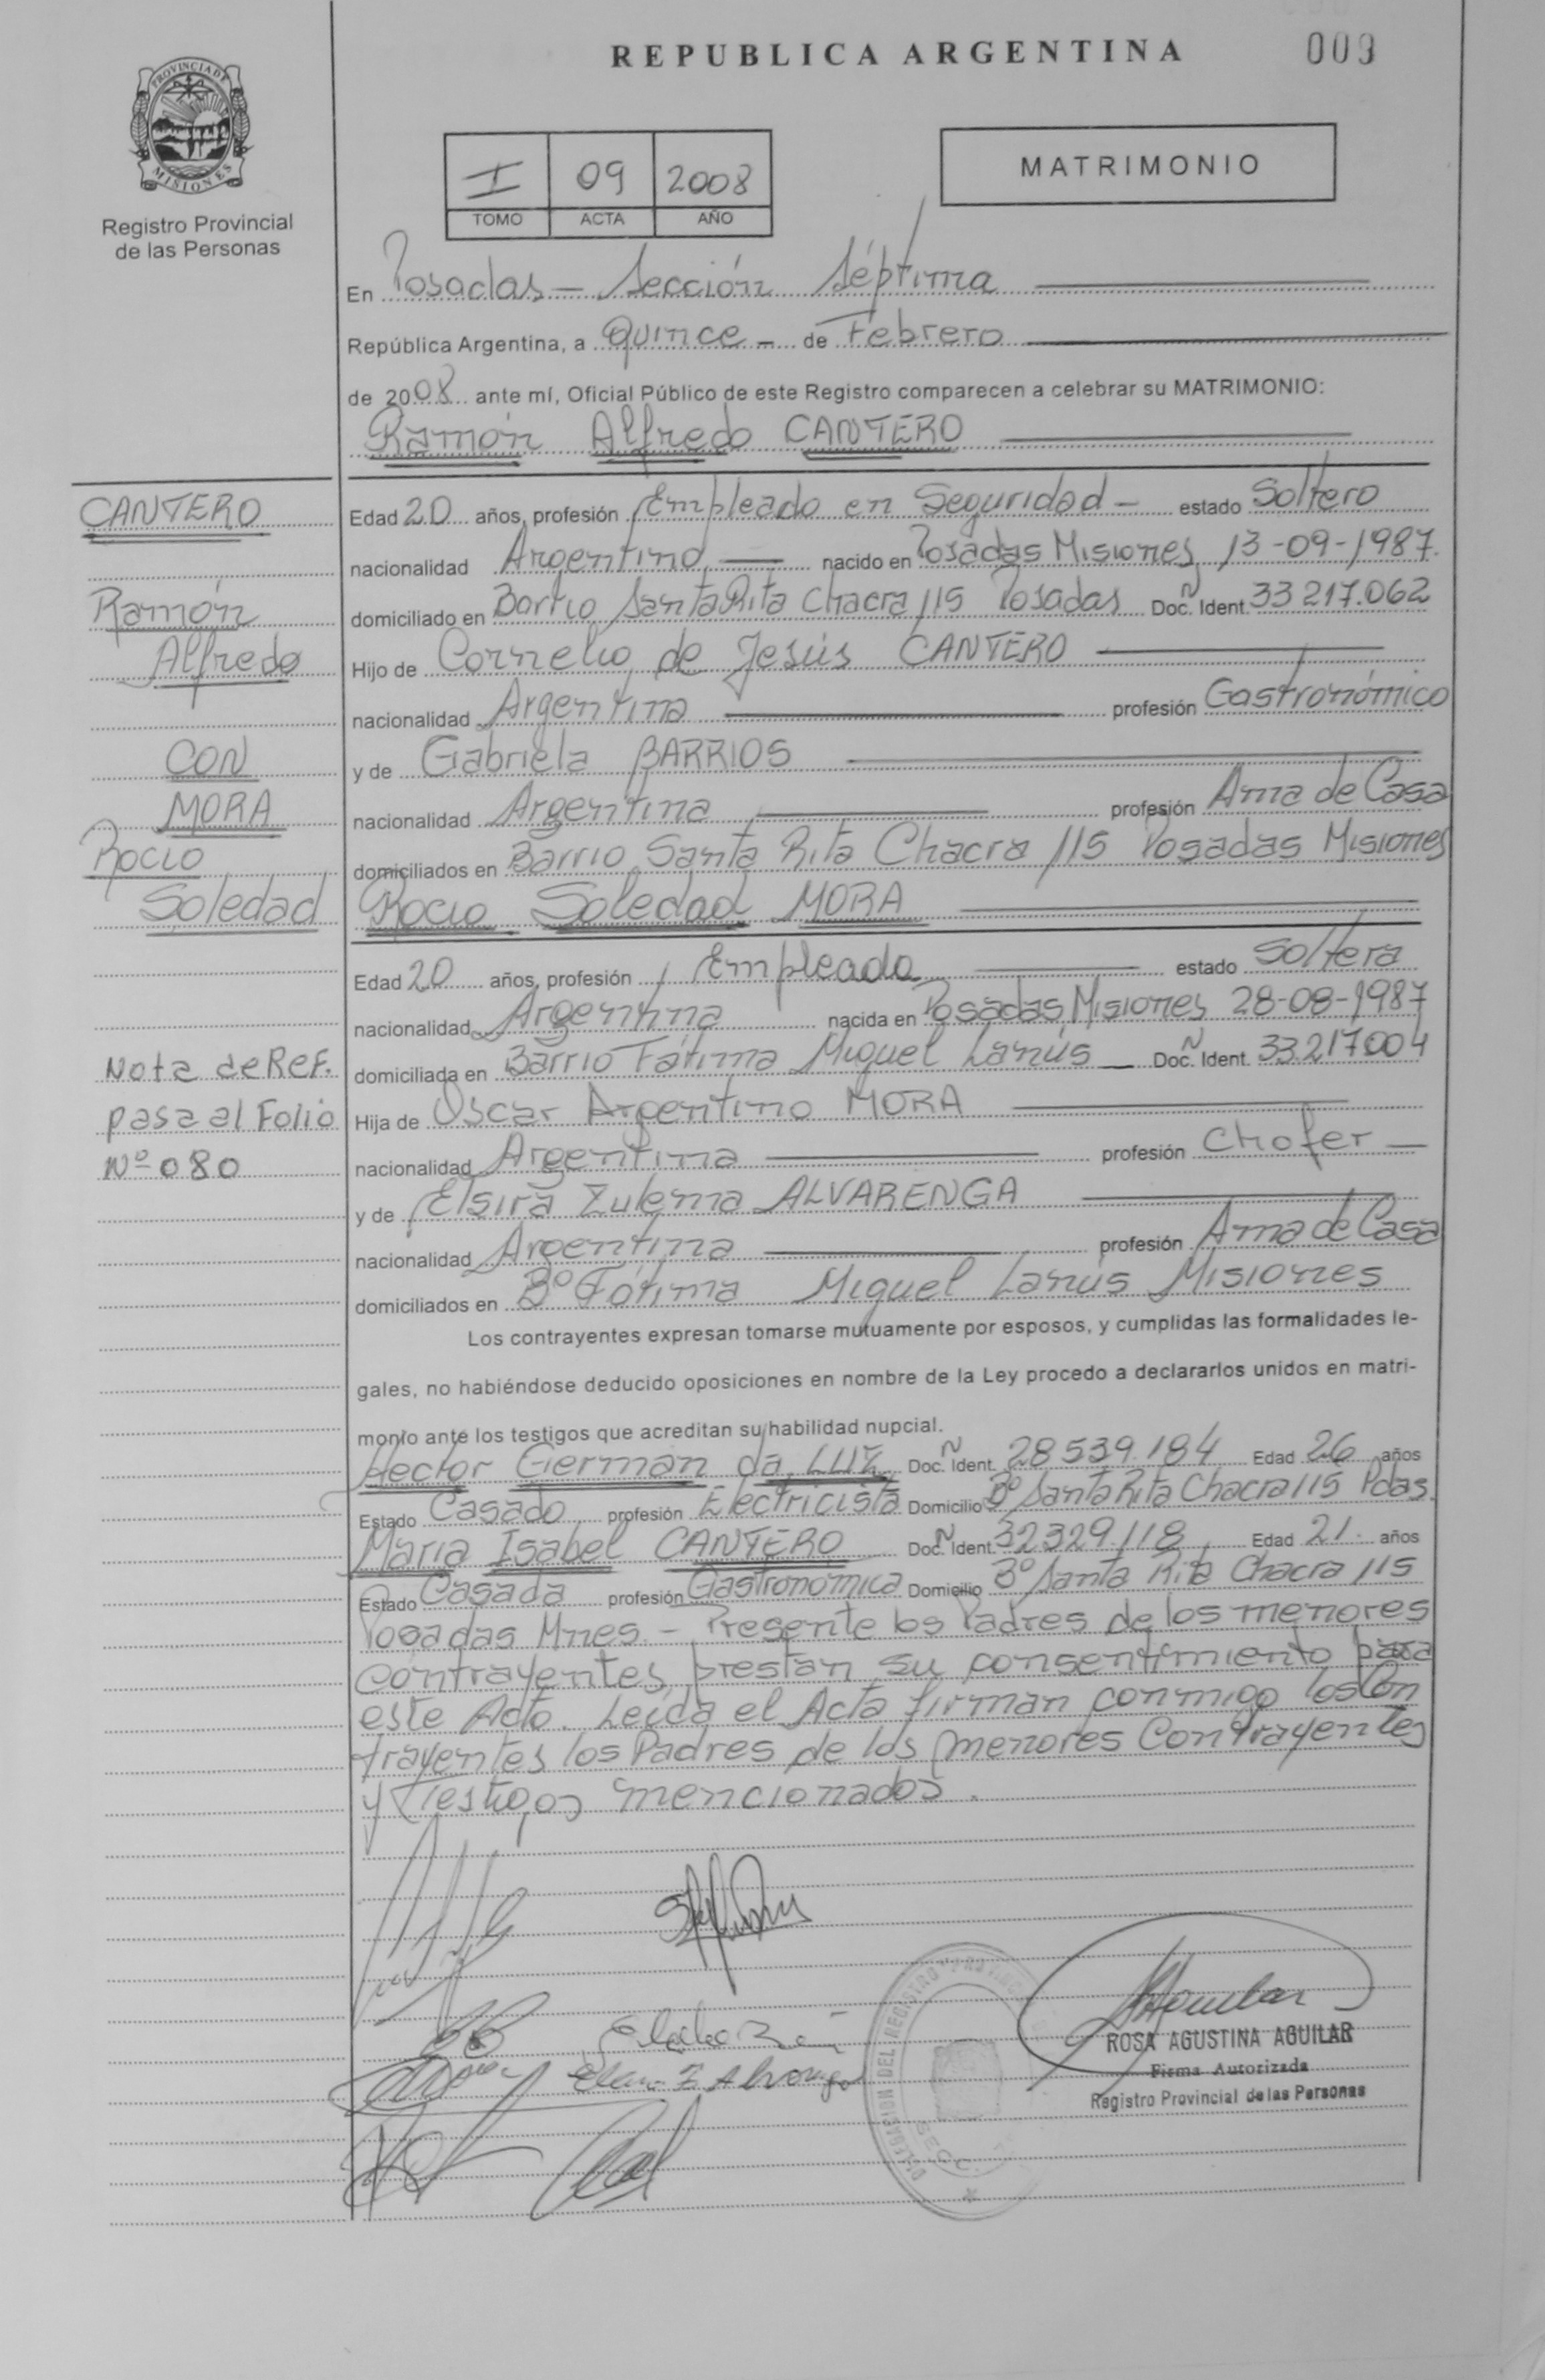 REPUBLICA ARGENTINA 009
PROVINCIA DE MISIONES
Registro Provincial
de las Personas
I 09 2008
TOMO ACTA AÑO
MATRIMONIO
En Posadas – Sección Séptima
República Argentina, a Quince – de Febrero
de 2008 ante mí, Oficial Público de este Registro comparecen a celebrar su MATRIMONIO:
Ramón Alfredo CANTERO
CANTERO
Ramón
Alfredo
CON
MORA
Rocio
Soledad
Nota de Ref.
pasa al Folio
Nº 080
Edad 20 años, profesión Empleado en Seguridad – estado Soltero
nacionalidad Argentino nacido en Posadas Misiones, 13-09-1987.
domiciliado en Barrio Santa Rita Chacra 115 Posadas Doc. N Ident. 33 217.062
Hijo de Cornelio de Jesús CANTERO
nacionalidad Argentina profesión Gastronómico
y de Gabriela BARRIOS
nacionalidad Argentina profesión Ama de Casa
domiciliados en Barrio Santa Rita Chacra 115 Posadas Misiones
Rocio Soledad MORA
Edad 20 años, profesión Empleada estado Soltera
nacionalidad Argentina nacida en Posadas, Misiones, 28-08-1987
domiciliada en Barrio Fátima Miguel Lanús – Doc. N Ident. 33217004
Hija de Oscar Argentino MORA
nacionalidad Argentina profesión Chofer
y de Elsira Zulema ALVARENGA
nacionalidad Argentina profesión Ama de Casa
domiciliados en Bº Fátima Miguel Lanús Misiones
Los contrayentes expresan tomarse mutuamente por esposos, y cumplidas las formalidades le-
gales, no habiéndose deducido oposiciones en nombre de la Ley procedo a declararlos unidos en matri-
monio ante los testigos que acreditan su habilidad nupcial.
Hector German da LUZ Doc. N Ident. 28 539.184 Edad 26 años
Estado Casado profesión Electricista Domicilio Bº Santa Rita Chacra 115 Pdas.
Maria Isabel CANTERO Doc. N Ident. 32329.118 Edad 21. años
Estado Casada profesión Gastronómica Domicilio Bº Santa Rita Chacra 115
Posadas Mnes. – Presente los Padres de los menores
contrayentes, prestan su consentimiento para
este Acto. Leída el Acta firman conmigo los Con
trayentes los Padres de los menores Contrayentes
y Testigos mencionados.
DELEGACION DEL REGISTRO PROVINC
SECC.
ROSA AGUSTINA AGUILAR
Firma Autorizada
Registro Provincial de las Personas